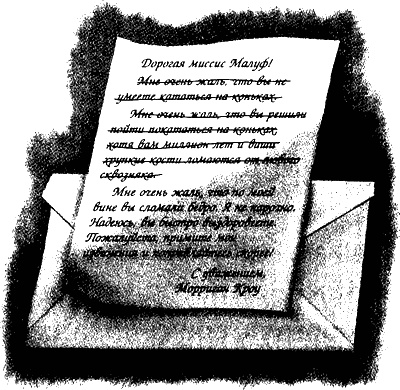 Дорогая миссис Малуф!
Мне очень жаль, что вы не
умеете кататься на коньках.
Мне очень жаль, что вы решили
пойти покататься на коньках,
хотя вам миллион лет и ваши
хрупкие кости ломаются от любого
сквозняка.
Мне очень жаль, что по моей
вине вы сломали бедро. Я не нарочно.
Надеюсь, вы быстро выздоровеете.
Пожалуйста, примите мои
извинения и поправляйтесь скорее!
С уважением,
Морриган Кроу